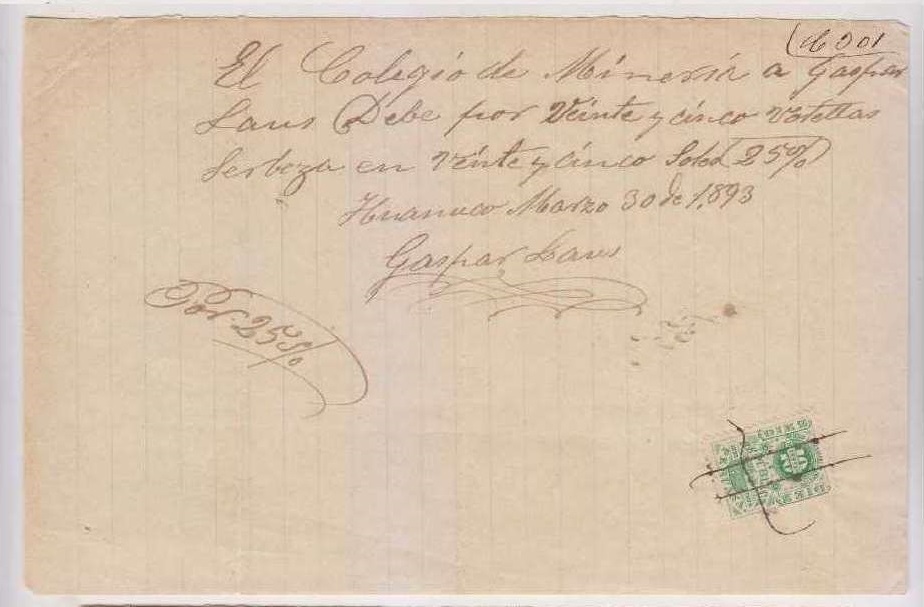 El Colegio de Mineria a Gaspar
Laus Debe por Veinte y cinco Votellas
Serbeza en Veinte y cinco Soles 25%
Huanuco Marzo 30 de 1,893
Gaspar Laus
Por 25%
DIEZ